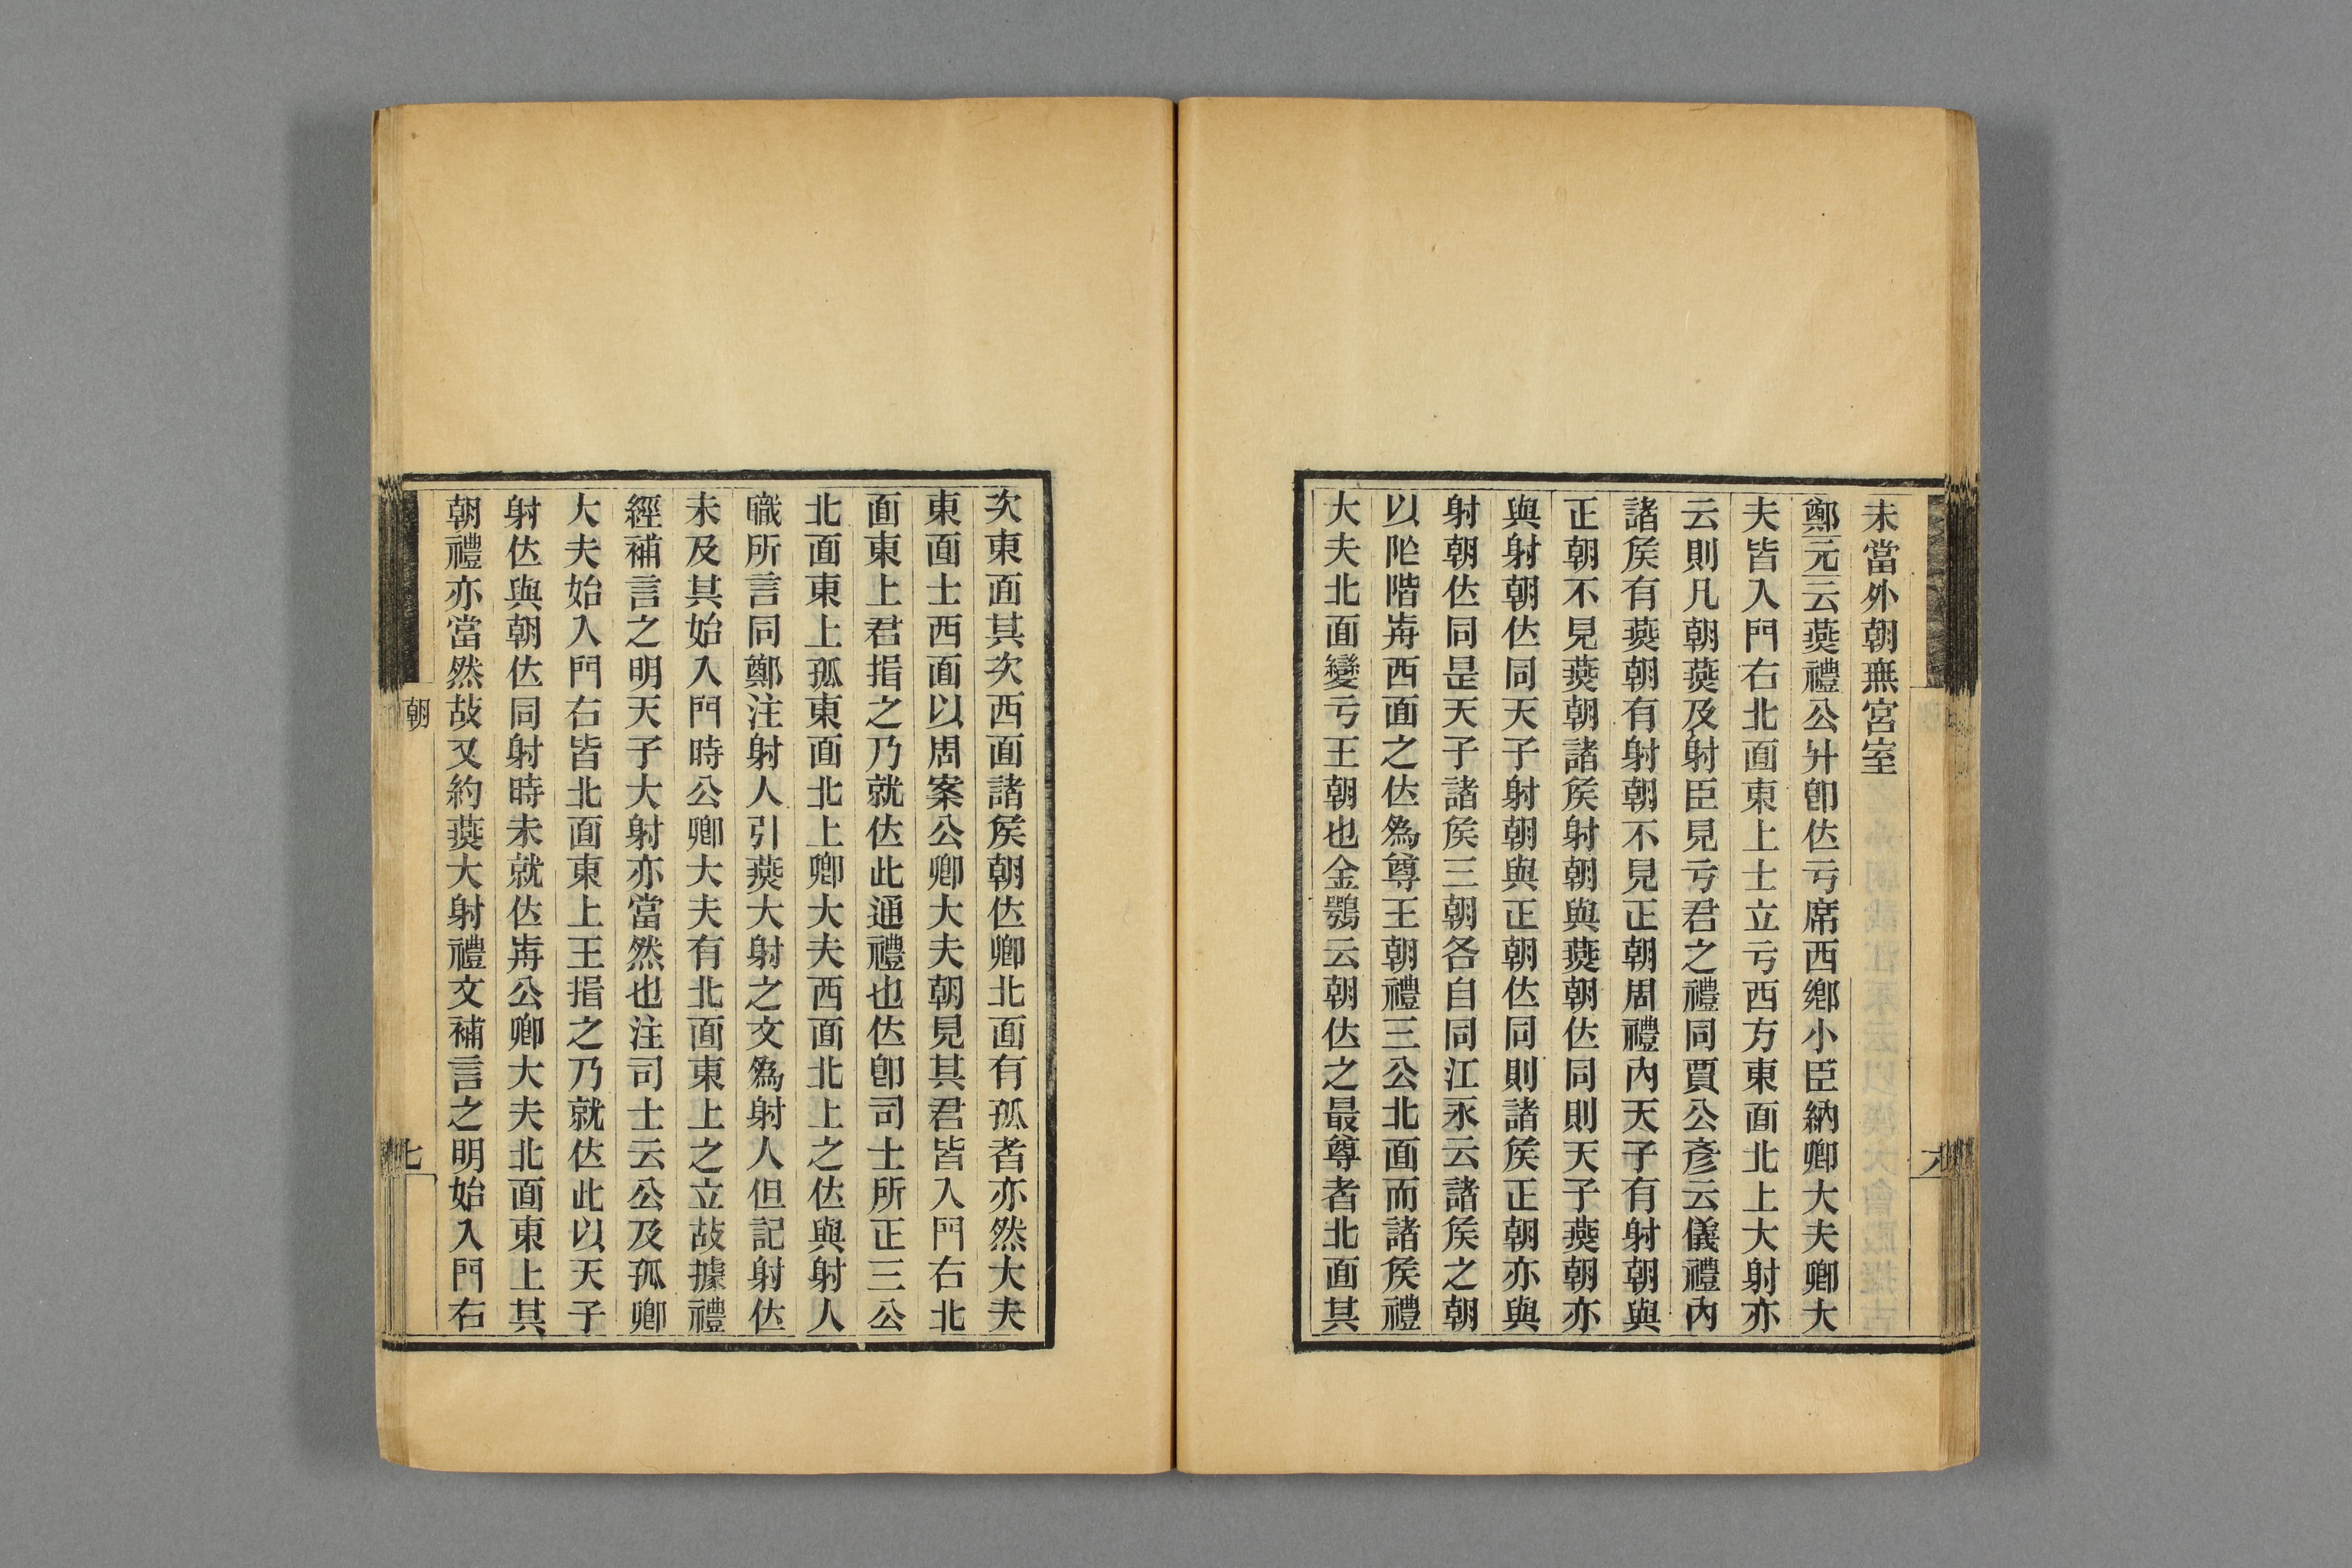 未當外朝無宮室
鄭元云燕禮公升卽位亏席西鄉小臣納卿大夫卿大
夫皆入門右北面東上士立亏西方東面北上大射亦
云則凡朝燕及射臣見亏君之禮同賈公彥云儀禮內
諸矦有燕朝有射朝不見正朝周禮內天子有射朝與
正朝不見燕朝諸矦射朝與燕朝位同則天子燕朝亦
與射朝位同天子射朝與正朝位同則諸矦正朝亦與
射朝位同是天子諸矦三朝各自同江永云諸矦之朝
以阼階歬西面之位爲尊王朝禮三公北面而諸矦禮
大夫北面變亏王朝也金鶚云朝位之最尊者北面其
次東面其次西面諸矦朝位卿北面有孤者亦然大夫
東面士西面以周案公卿大夫朝見其君皆入門右北
面東上君揖之乃就位此通禮也位卽司士所正三公
北面東上孤東面北上卿大夫西面北上之位與射人
職所言同鄭注射人引燕大射之文爲射人但記射位
未及其始入門時公卿大夫有北面東上之立故據禮
經補言之明天子大射亦當然也注司士云公及孤卿
大夫始入門右皆北面東上王揖之乃就位此以天子
射位與朝位同射時未就位歬公卿大夫北面東上其
朝禮亦當然故又約燕大射禮文補言之明始入門右
朝
七
六